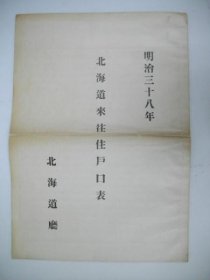 明治三十八年
北海道來往住戶口表
北海道廳